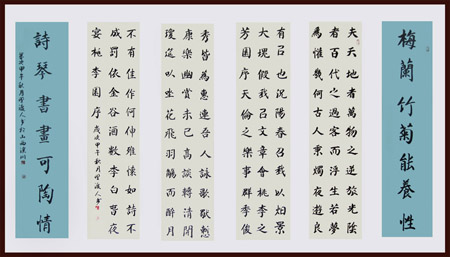 梅蘭竹菊能養性
夫天地者萬物之逆旅光陰
者百代之過客而浮生若夢
為懽幾何古人秉燭夜遊良
有㠯也況陽春召我㠯烟景
大塊假我㠯文章會桃李之
芳園序天倫之樂事群季俊
秀皆為惠連吾人詠歌獨慙
康樂幽賞未已高談轉清開
瓊筵㠯坐花飛羽觴而醉月
不有佳作何伸雅懷如詩不
成罰依金谷酒數李白春夜
宴桃李園序 歲次甲午秋月
詩琴書畫可陶情
歲次甲午秋月